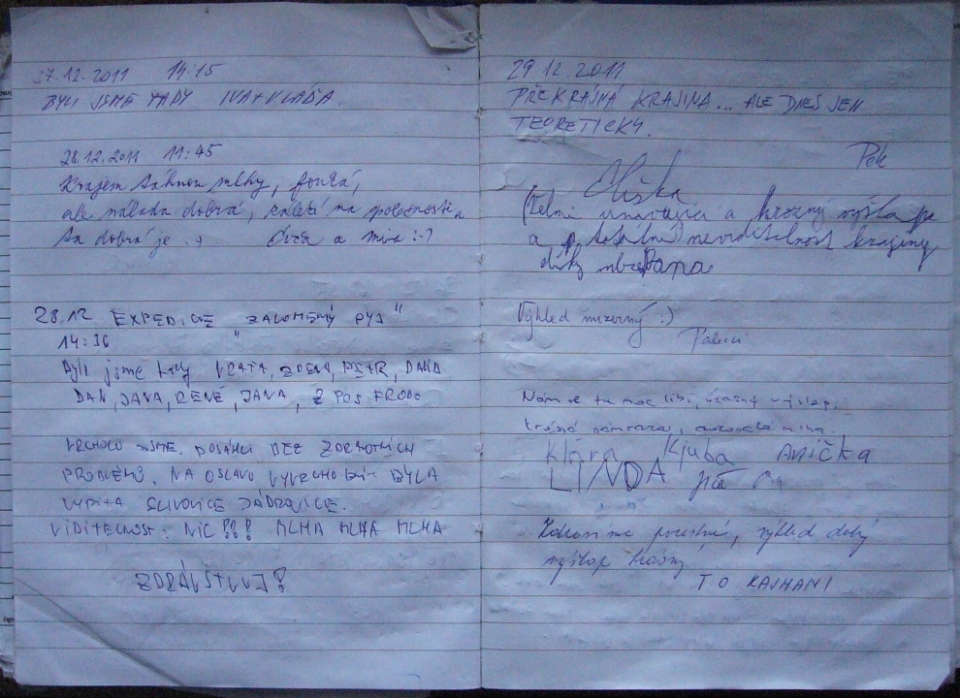 27.12.2011 14:15
BYLI JSME TADY IVA+VLAĎA
28.12.2011 11:45
Krajem táhnou mlhy, fouká,
ale nálada dobrá, záleží na společnosti a
ta dobrá je :-) a Míra :-)
28.12 EXPEDICE "ZALOMENÝ PYJ"
14:36
Byli jsme tady VRATA, ZDENA, PETR, DANA
DAN, JANA, RENÉ, JANA, Z PSŮ FRODO
VRCHOLU JSME DOSÁHLI BEZ ZDRAVOTNÍCH
PROBLÉMŮ. NA OSLAVU BYLA
VYPITA SLIVOVICE
VIDITELNOST: NIC !!! MLHA MLHA MLHA
ZDRÁVSTVUJ!
29.12.2011
PŘEKRÁSNÁ KRAJINA... ALE DNES JEN
TEORETICKY.
Pek
Eliška
(Velmi unavující a hrozný výšlap
a totální neviditelnost krajiny
díky
Výhled mizerný :)
Nám se tu moc líbí, úžasný výšlap,
krásná námraza,
Klára Kjuba Anička
LINDA Jiří
výhled dobrý
výšlap krásný
T.O. KAJMANI